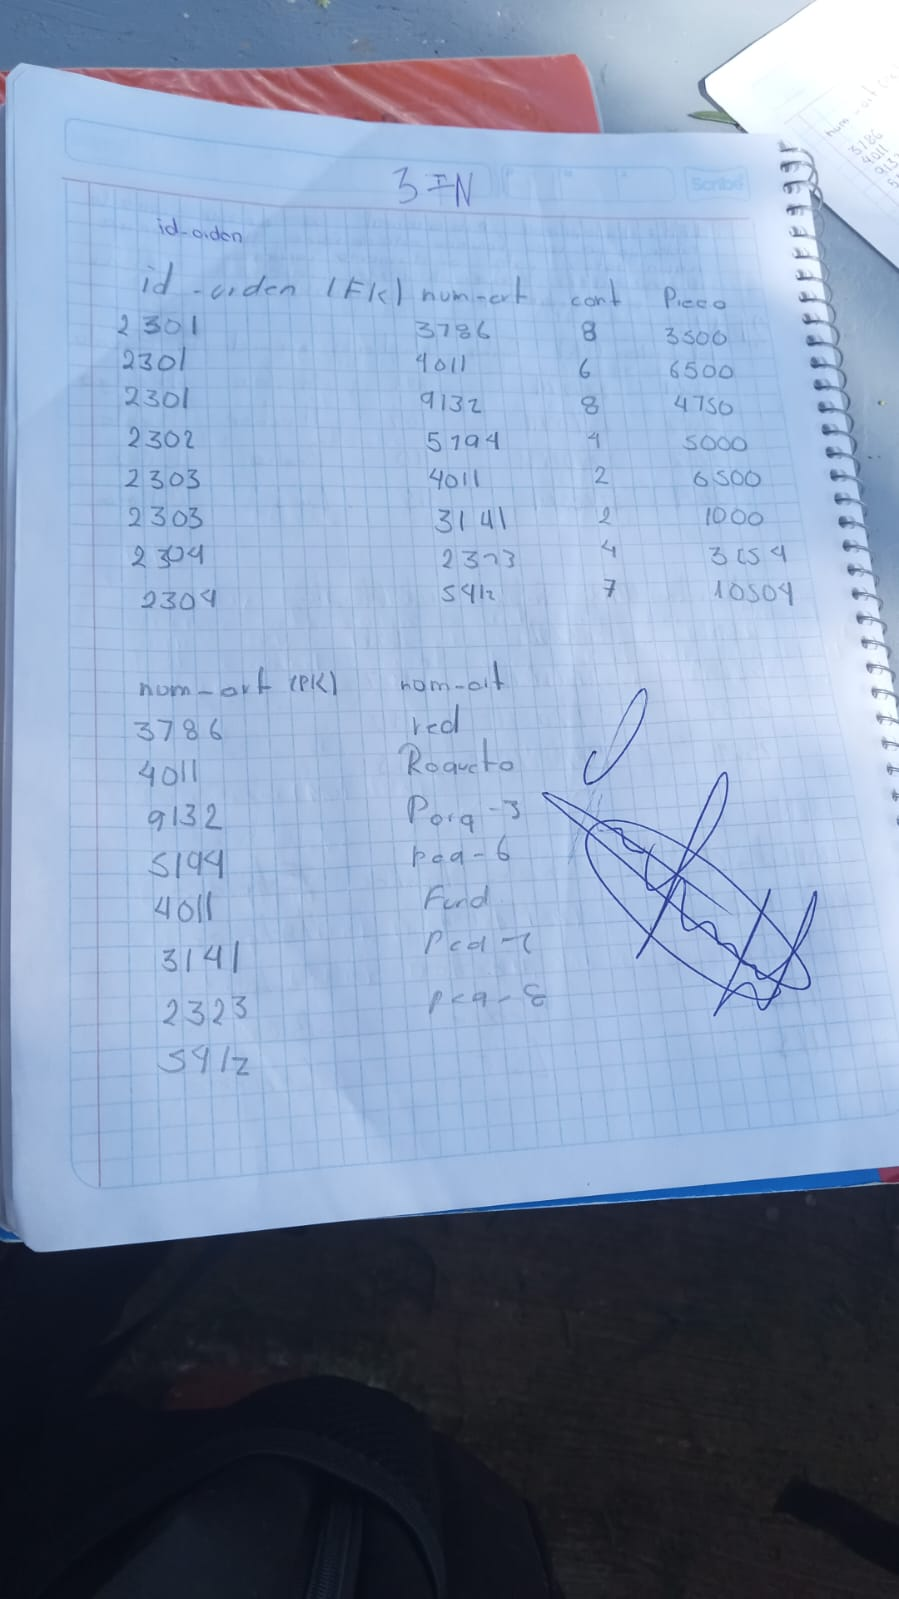 3FN
Scribe
id-orden
id-orden (FK) num-art cant Precio
2301 3786 8 3500
2301 4011 6 6500
2301 9132 8 4750
2302 5794 4 5000
2303 4011 2 6500
2303 3141 2 1000
2304 2373 4
2304 5412 7 10504
num-art (PK) nom-art
3786 red
4011 Raqueta
9132 Paq-3
5194 paq-6
4011 Fund
3141
2323 paq-8
5412
3786
4011